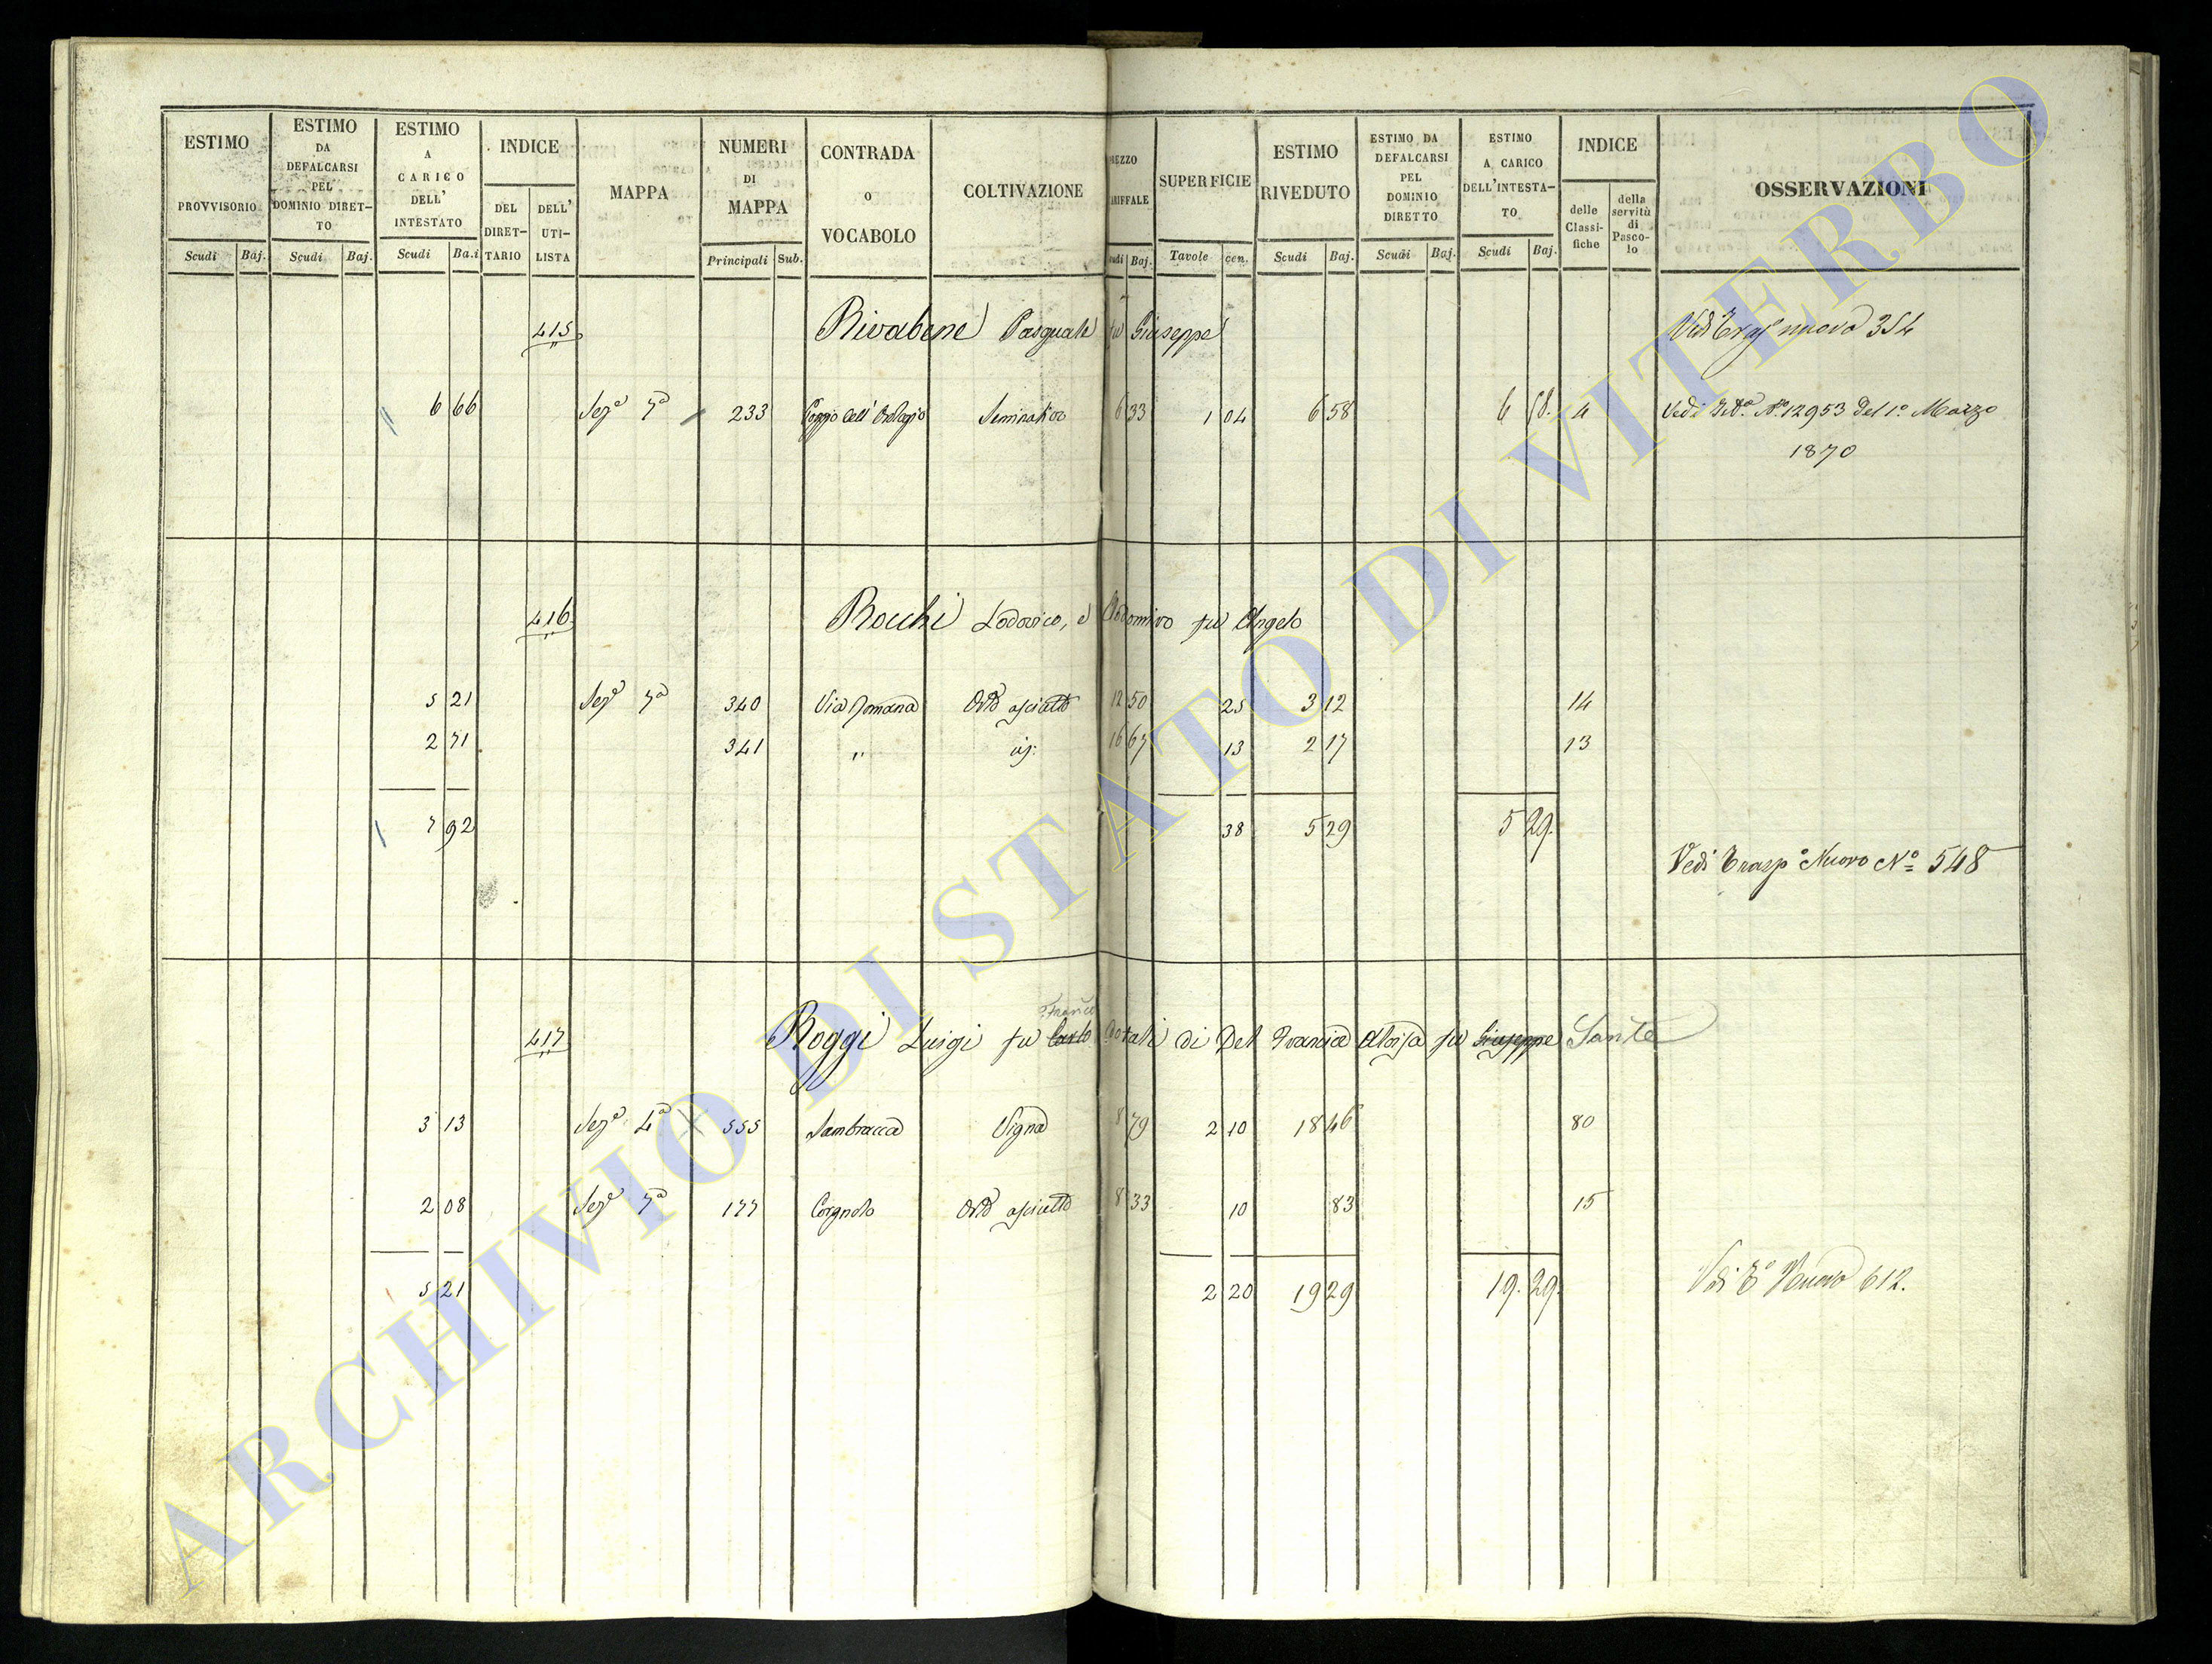 ESTIMO PROVVISORIO
ESTIMO DA DEFALCARSI PEL DOMINIO DIRETTO
ESTIMO A CARICO DELL' INTESTATO
INDICE
DEL DIRETTARIO
DELL' UTILISTA
MAPPA
NUMERI DI MAPPA
CONTRADA O VOCABOLO
COLTIVAZIONE
SUPERFICIE
ESTIMO RIVEDUTO
ESTIMO DA DEFALCARSI PEL DOMINIO DIRETTO
ESTIMO A CARICO DELL'INTESTATO
INDICE
delle Classifiche
della servitù di Pascolo
OSSERVAZIONI
Scudi Baj. Scudi Baj. Scudi Ba.i Principali Sub. Baj. Tavole cen. Scudi Baj. Scudi Baj. Scudi Baj.
415 Rivabene Pasquale fu Giuseppe
nuovo 354
6 66 Sezª 7ª 233 Poggio dell' Orologio Seminativo 6 33 1 04 6 58 6 58. 4 Vedi Nº 12953 del 1º Marzo
1870
416 Rocchi Lodovico, e Clodomiro fu Angelo
5 21 Sezª 7ª 340 Via Romana Orto asciutto 12 50 25 3 12 14
2 71 341 " 16 67 13 2 17 13
7 92 38 5 29 5 29.
Vedi Traspº Nuovo Nº 548
Franco
417 Roggi Luigi fu Carlo Dotali di Del Francia Aloisa fu Giuseppe Sante
3 13 Sezª 4ª X 555 Sambracca Vigna 8 79 2 10 18 46 80
2 08 Sezª 7ª 177 Corgnolo Orto asciutto 8 33 10 83 15
5 21 2 20 19 29 19. 29.
Vedi Tº Nuovo 612.
ARCHIVIO DI STATO DI VITERBO